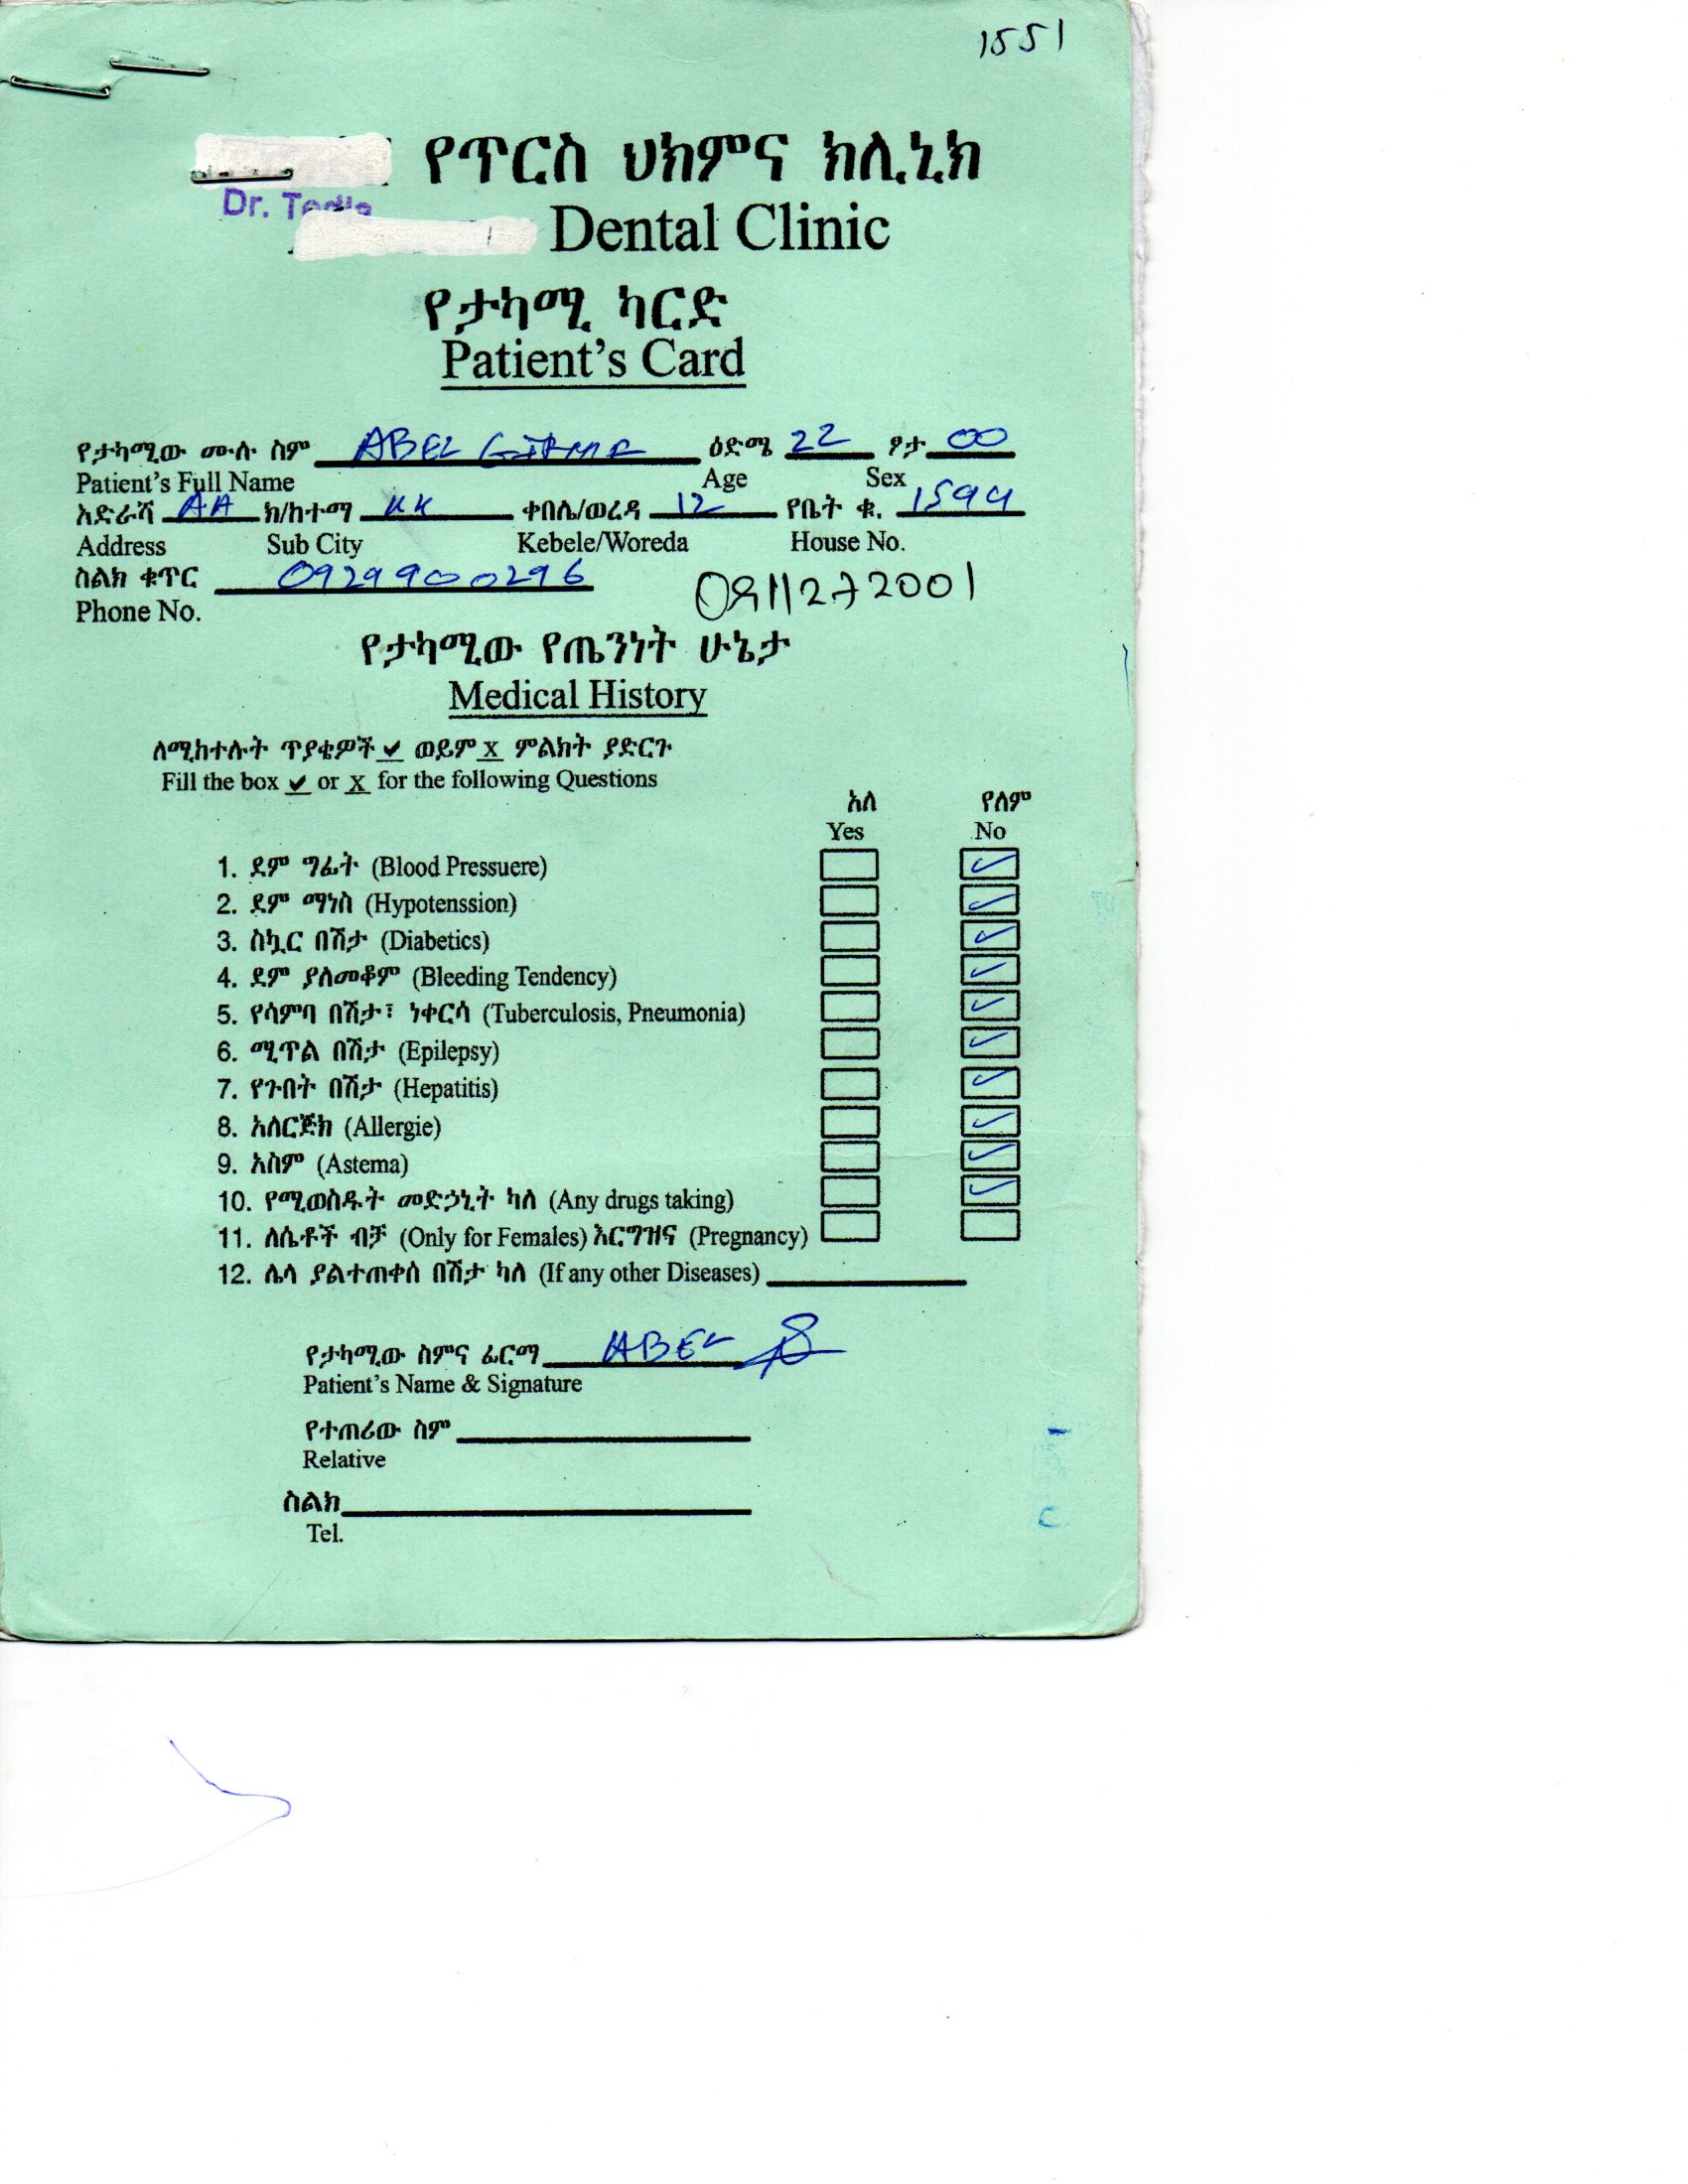 1551
የጥርስ ህክምና ክሊኒክ
Dr.
Dental Clinic
የታካሚ ካርድ
Patient's Card
የታካሚው ሙሉ ስም ABEL GIRMA ዕድሜ 22 ፆታ
Patient's Full Name Age Sex
አድራሻ AA ክ/ከተማ KK ቀበሌ/ወረዳ 12 የቤት ቁ. 1599
Address Sub City Kebele/Woreda House No.
ስልክ ቁጥር 0929900296
Phone No. 0911272001
የታካሚው የጤንነት ሁኔታ
Medical History
ለሚከተሉት ጥያቄዎች ✓ ወይም X ምልክት ያድርጉ
Fill the box ✓ or X for the following Questions
አለ የለም
Yes No
1. ደም ግፊት (Blood Pressuere) ✓
2. ደም ማነስ (Hypotenssion) ✓
3. ስኳር በሽታ (Diabetics) ✓
4. ደም ያለመቆም (Bleeding Tendency) ✓
5. የሳምባ በሽታ፣ ነቀርሳ (Tuberculosis, Pneumonia) ✓
6. ሚጥል በሽታ (Epilepsy) ✓
7. የጉበት በሽታ (Hepatitis) ✓
8. አለርጅክ (Allergie) ✓
9. አስም (Astema) ✓
10. የሚወስዱት መድኃኒት ካለ (Any drugs taking) ✓
11. ለሴቶች ብቻ (Only for Females) እርግዝና (Pregnancy)
12. ሌላ ያልተጠቀሰ በሽታ ካለ (If any other Diseases)
የታካሚው ስምና ፊርማ ABEL
Patient's Name & Signature
የተጠሪው ስም
Relative
ስልክ
Tel.